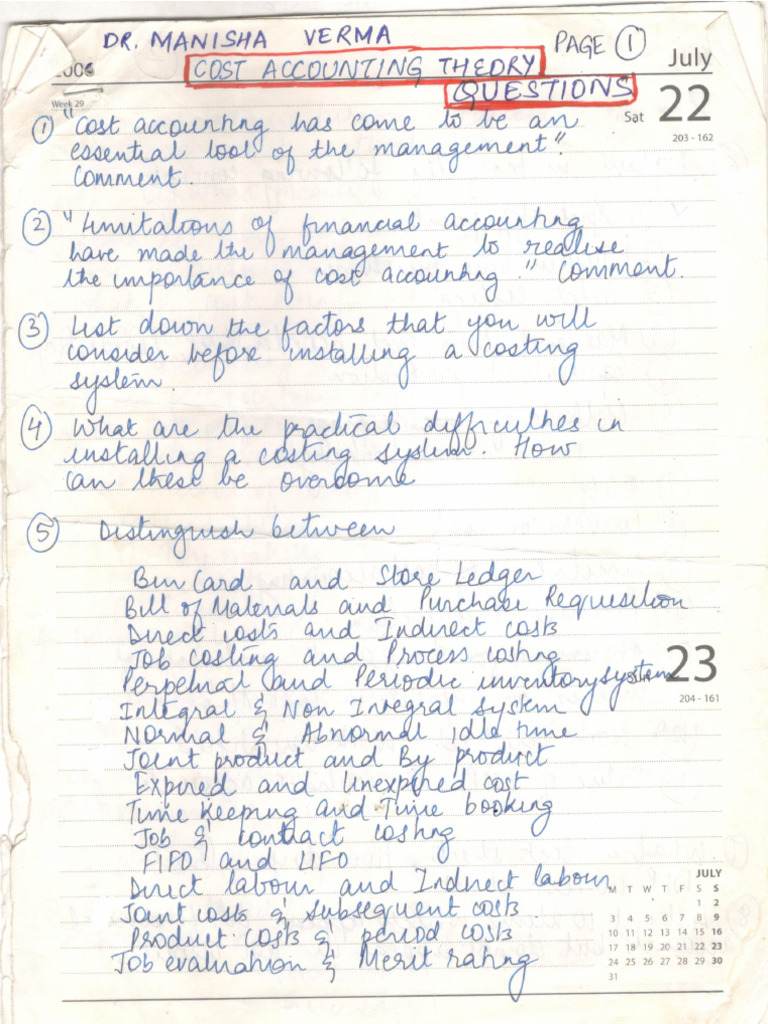 DR. MANISHA VERMA
PAGE 1
2006
COST ACCOUNTING THEORY
July
QUESTIONS
Week 29
Sat 22
203 - 162
1 "Cost accounting has come to be an
essential tool of the management".
Comment.
2 "Limitations of financial accounting
have made the management to realise
the importance of cost accounting." Comment.
3 List down the factors that you will
consider before installing a costing
system.
4 What are the practical difficulties in
installing a costing system. How
can these be overcome
5 Distinguish between
Bin Card and Store Ledger
Bill of Materials and Purchase Requisition
Direct costs and Indirect costs
Job costing and Process costing
Perpetual and Periodic inventory system
Sun 23
204 - 161
Integral & Non Integral system
Normal & Abnormal idle time
Joint product and By product
Expired and Unexpired cost
Time keeping and Time booking
Job & contract costing
FIFO and LIFO
Direct labour and Indirect labour
Joint costs & subsequent costs
Product costs & period costs
Job evaluation & Merit rating
JULY
M T W T F S S
1 2
3 4 5 6 7 8 9
10 11 12 13 14 15 16
17 18 19 20 21 22 23
24 25 26 27 28 29 30
31